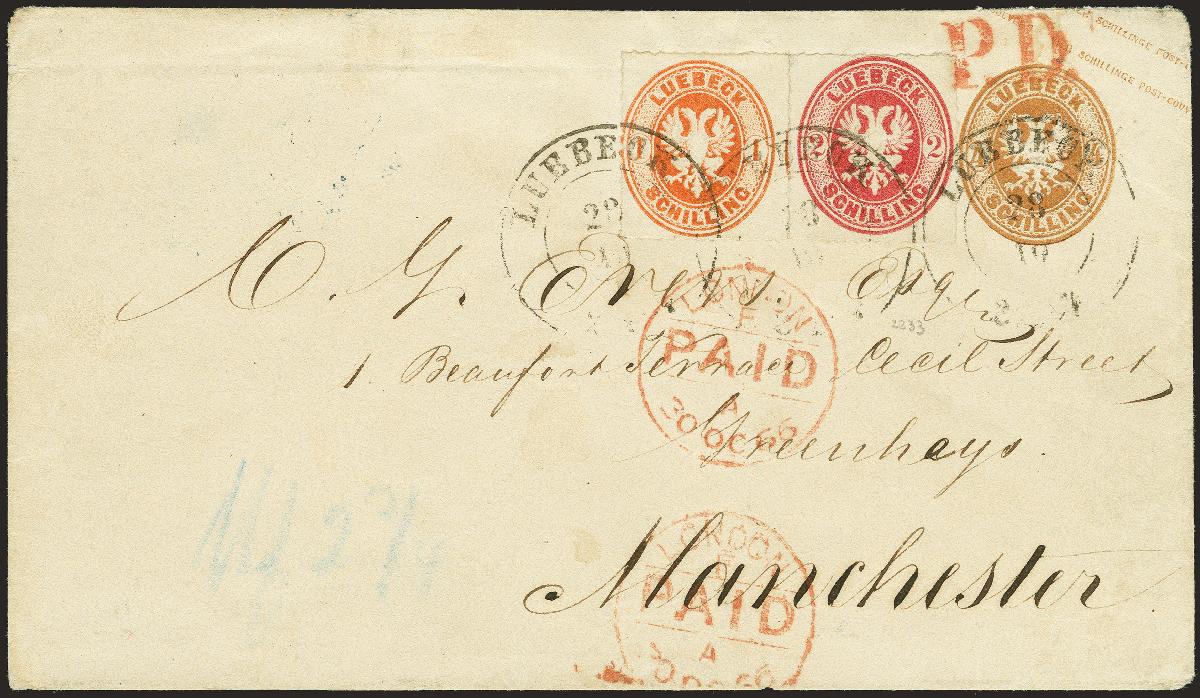 P.D.
SCHILLINGE POST-COUV
SCHILLINGE POST-COUV
LUEBECK
1
SCHILLING
LUEBECK
2 2
SCHILLING
LUEBECK
SCHILLING
LUEBECK
LUEBECK
28
10
Esqr
2233
LONDON
PAID
A
30 OC 66
1 Beaufort Terrace Cecil Street
Greenheys
LONDON
PAID
A
Manchester